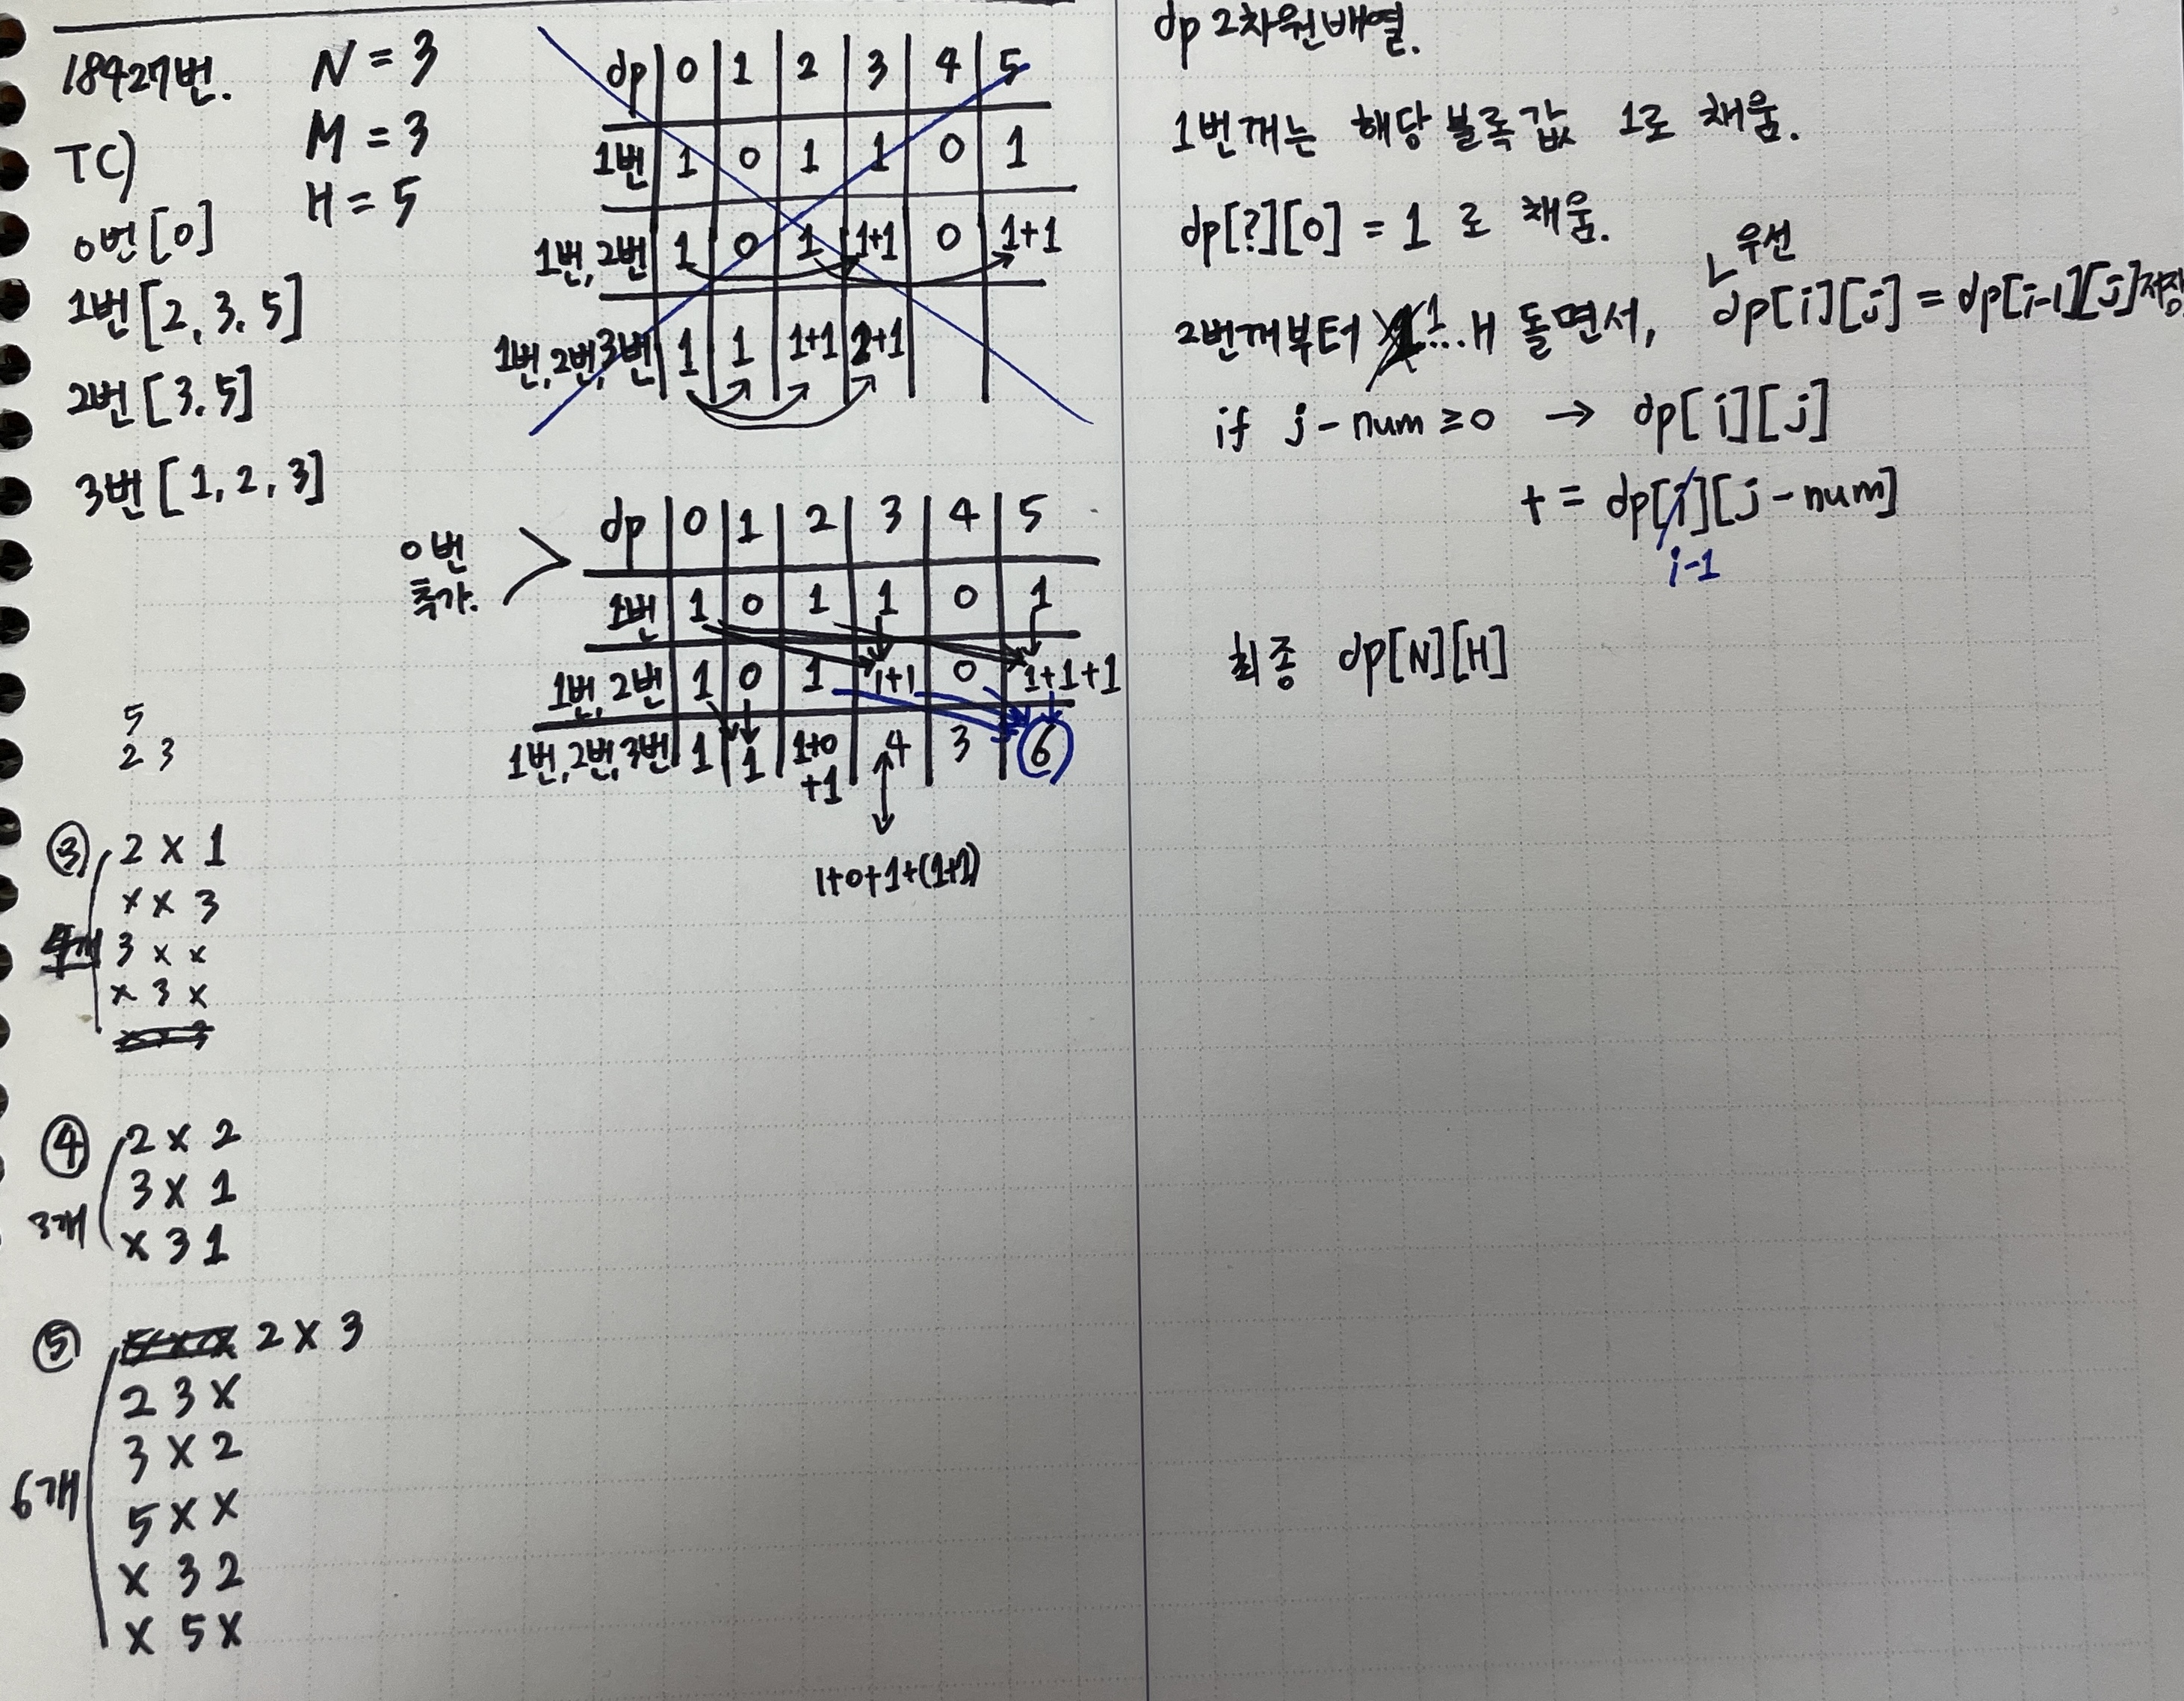 18427번.
N = 3
M = 3
H = 5
TC)
0번 [0]
1번 [2, 3. 5]
2번 [3. 5]
3번 [1, 2, 3]
dp 0 1 2 3 4 5
1번 1 0 1 1 0 1
1번, 2번 1 0 1 1+1 0 1+1
1번, 2번, 3번 1 1 1+1 2+1
0번
추가.
dp 0 1 2 3 4 5
1번 1 0 1 1 0 1
1번, 2번 1 0 1 1+1 0 1+1+1
1번, 2번, 3번 1 1 1+0 4 3 6
+1
1+0+1+(1+1)
5
2 3
③ 2 x 1
x x 3
4개 3 x x
x 3 x
④ 2 x 2
3 x 1
3개 x 3 1
⑤ 2 x 3
2 3 x
3 x 2
6개 5 x x
x 3 2
x 5 x
dp 2차원배열.
1번꺼는 해당 블록값 1로 채움.
dp[?][0] = 1 로 채움.
우선
2번꺼부터 1...H 돌면서, dp[i][j] = dp[i-1][j] 저장
if j - num ≥ 0 → dp[i][j]
+= dp[i][j - num]
i-1
최종 dp[N][H]